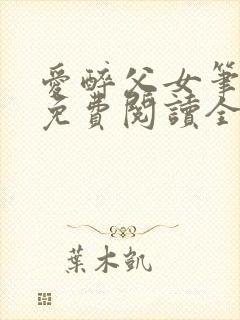 愛醉父女筆
免費閱讀全
葉木凱